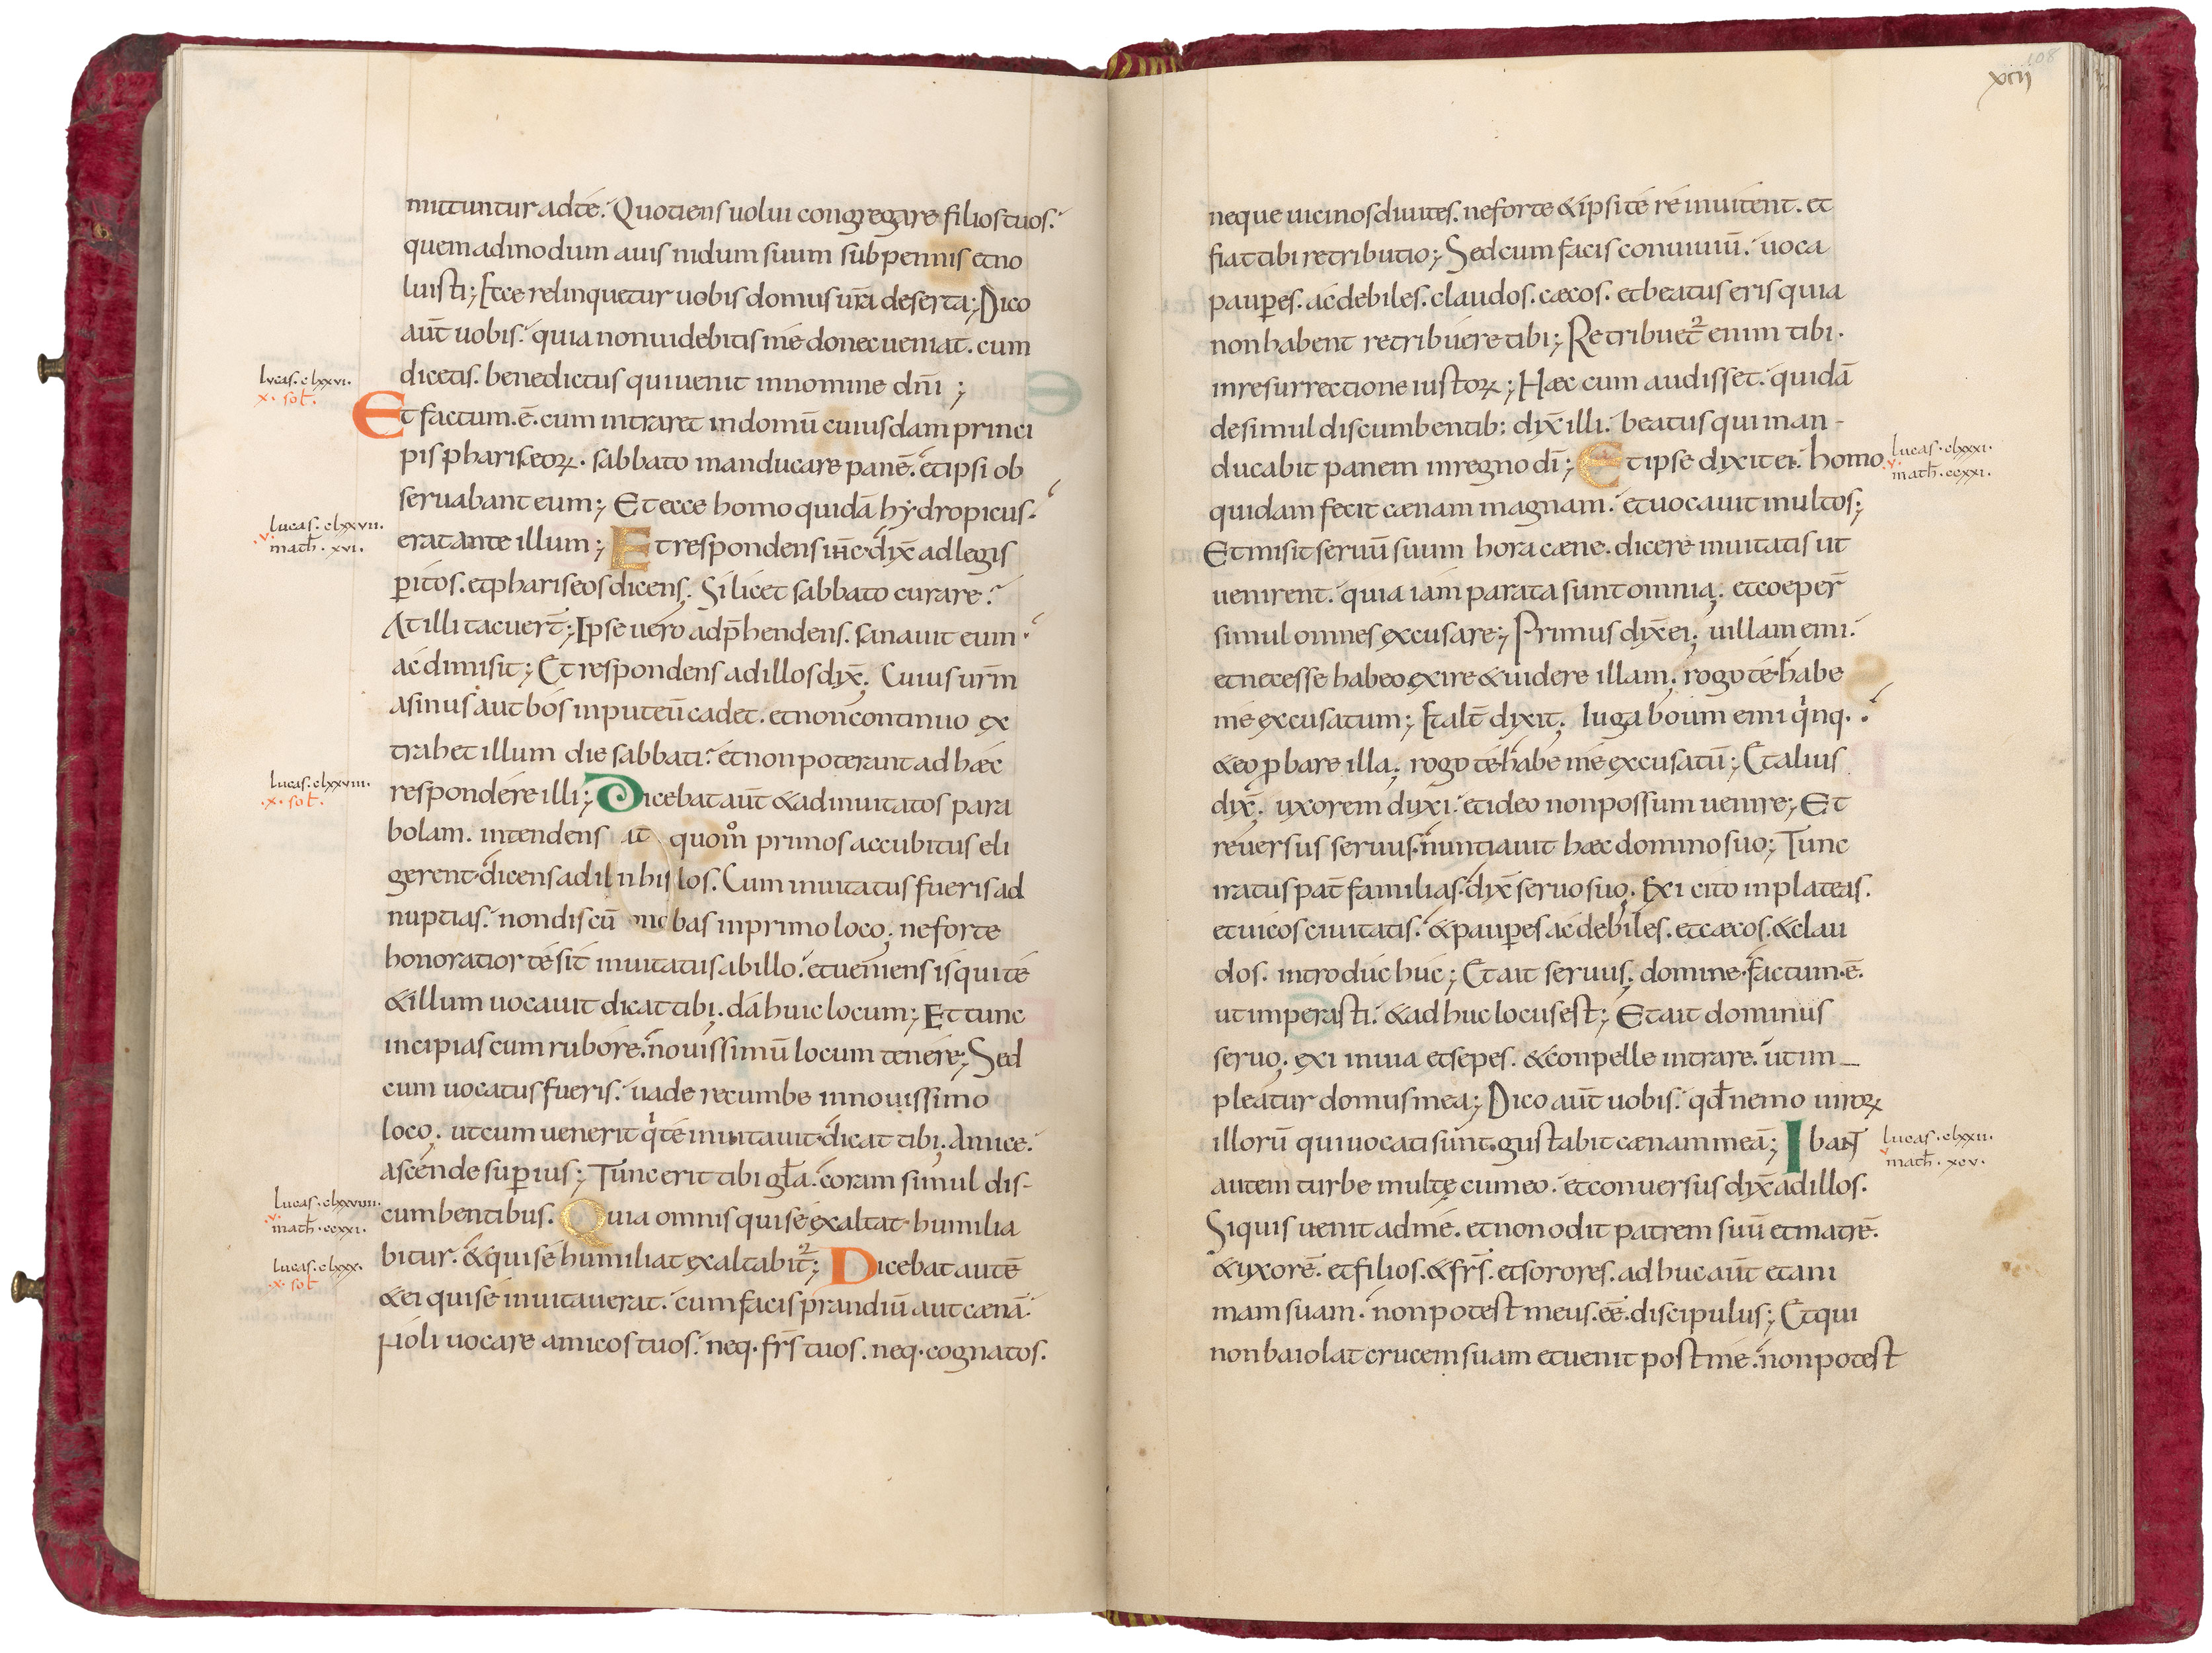 mittuntur ad té. Quotiens uolui congregare filios tuos.
quemadmodum auis nidum suum sub pennis et no
luisti; Ecce relinquetur uobis domus ur̄a deserta; Dico
aut̄ uobis. quia non uidebitis mé donec ueniat. cum
dicetis. benedictus qui uenit in nomine dn̄i;
lucas. clxxvi.
x. sol̄.
Et factum. ē. cum intraret in domū cuiusdam princi
pis phariseoꝝ. sabbato manducare panē. et ipsi ob
seruabant eum; Et ecce homo quidā hydropicus.
lucas. clxxvii.
.v. math̄. xvi.
erat ante illum; Et respondens ih̄c dix̄ ad legis
ꝑitos. et phariseos dicens. Si licet sabbato curare?
At illi tacuer̄t; Ipse uero adp̄hendens. sanauit eum.
ac dimisit; Et respondens ad illos dix̄. Cuius ur̄m
asinus aut bos in puteū cadet. et non continuo ex
trahet illum die sabbati? et non poterant ad haec
lucas. clxxviii.
.x. sol̄.
respondére illi; Dicebat aut̄ & ad inuitatos para
bolam. intendens quom̊ primos accubitus eli
gerent. dicens ad il los. Cum inuitatus fueris ad
nuptias. non discū bas in primo loco. ne forte
honoratior té sit inuitatus ab illo. et ueniens is qui té
& illum uocauit dicat tibi. dá huic locum; Et tunc
incipias cum rubore. nouissimū locum tenére; Sed
cum uocatus fueris. uade recumbe in nouissimo
loco. ut cum uenerit q̍ té inuitauit. dicat tibi. Amice.
ascende suꝑius; Tunc erit tibi gl̄a. coram simul dis-
lucas. clxxviiii.
.v. math̄. ccxxi.
cumbentibus. Quia omnis qui sé exaltat humilia
bitur. & qui sé humiliat exaltabit᷑; Dicebat autē
lucas. clxxx.
.x. sol̄
& ei qui sé inuitauerat. cum facis prandiū aut caenā.
Noli uocare amicos tuos. neq. fr̄s tuos. neq. cognatos.
108
xcij
neque uicinos diuites. ne forte & ipsi té reinuitent. et
fiat tibi retributio; Sed cum facis conuiuiū. uoca
pauꝑes. ac debiles. claudos. caecos. et beatus eris quia
non habent retribuere tibi; Retribuet᷑ enim tibi.
in resurrectione iustoꝝ; Haec cum audisset. quidā
de simul discumbentib; dix̄ illi. beatus qui man-
ducabit panem in regno dī; Et ipse dixit ei. homo
lucas. clxxxi.
.v. math̄. ccxxi.
quidam fecit caenam magnam. et uocauit multos;
Et misit seruū suum hora caene. dicere inuitatis ut
uenirent. quia iam parata sunt omnia. et coeper̄
simul omnes excusare; Primus dix̄ ei. uillam emi.
et necesse habeo exire & uidere illam. rogo té habe
mé excusatum; Et alt̄ dixit. Iuga boum emi q̍nq.
& eo ꝓbare illa. rogo té habe mé excusatū; Et alius
dix̄. uxorem duxi. et ideo non possum uenire; Et
reuersus seruus. nuntiauit haec domino suo; Tunc
iratus pat̄ familias. dix̄ seruo suo. Exi cito in plateas.
et uicos ciuitatis. & pauꝑes ac debiles. et caecos. & clau
dos. introduc huc; Et ait seruus. domine. factum. ē.
ut imperasti. & adhuc locus est; Et ait dominus
seruo. exi in uia et sepes. & conpelle intrare. ut im
pleatur domus mea; Dico aut̄ uobis. qd̄ nemo uiroꝝ
illorū qui uocati sunt. gustabit caenam meā; Ibant
lucas. clxxii.
v math̄. xcv.
autem turbe multę cum eo. et conuersus dix̄ ad illos.
Si quis uenit ad mé. et non odit patrem suū et matrē.
& uxorē. et filios. & fr̄s. et sorores. adhuc aut̄ et ani
mam suam. non potest meus. ēē. discipulus; Et qui
non baiolat crucem suam et uenit post mé. non potest